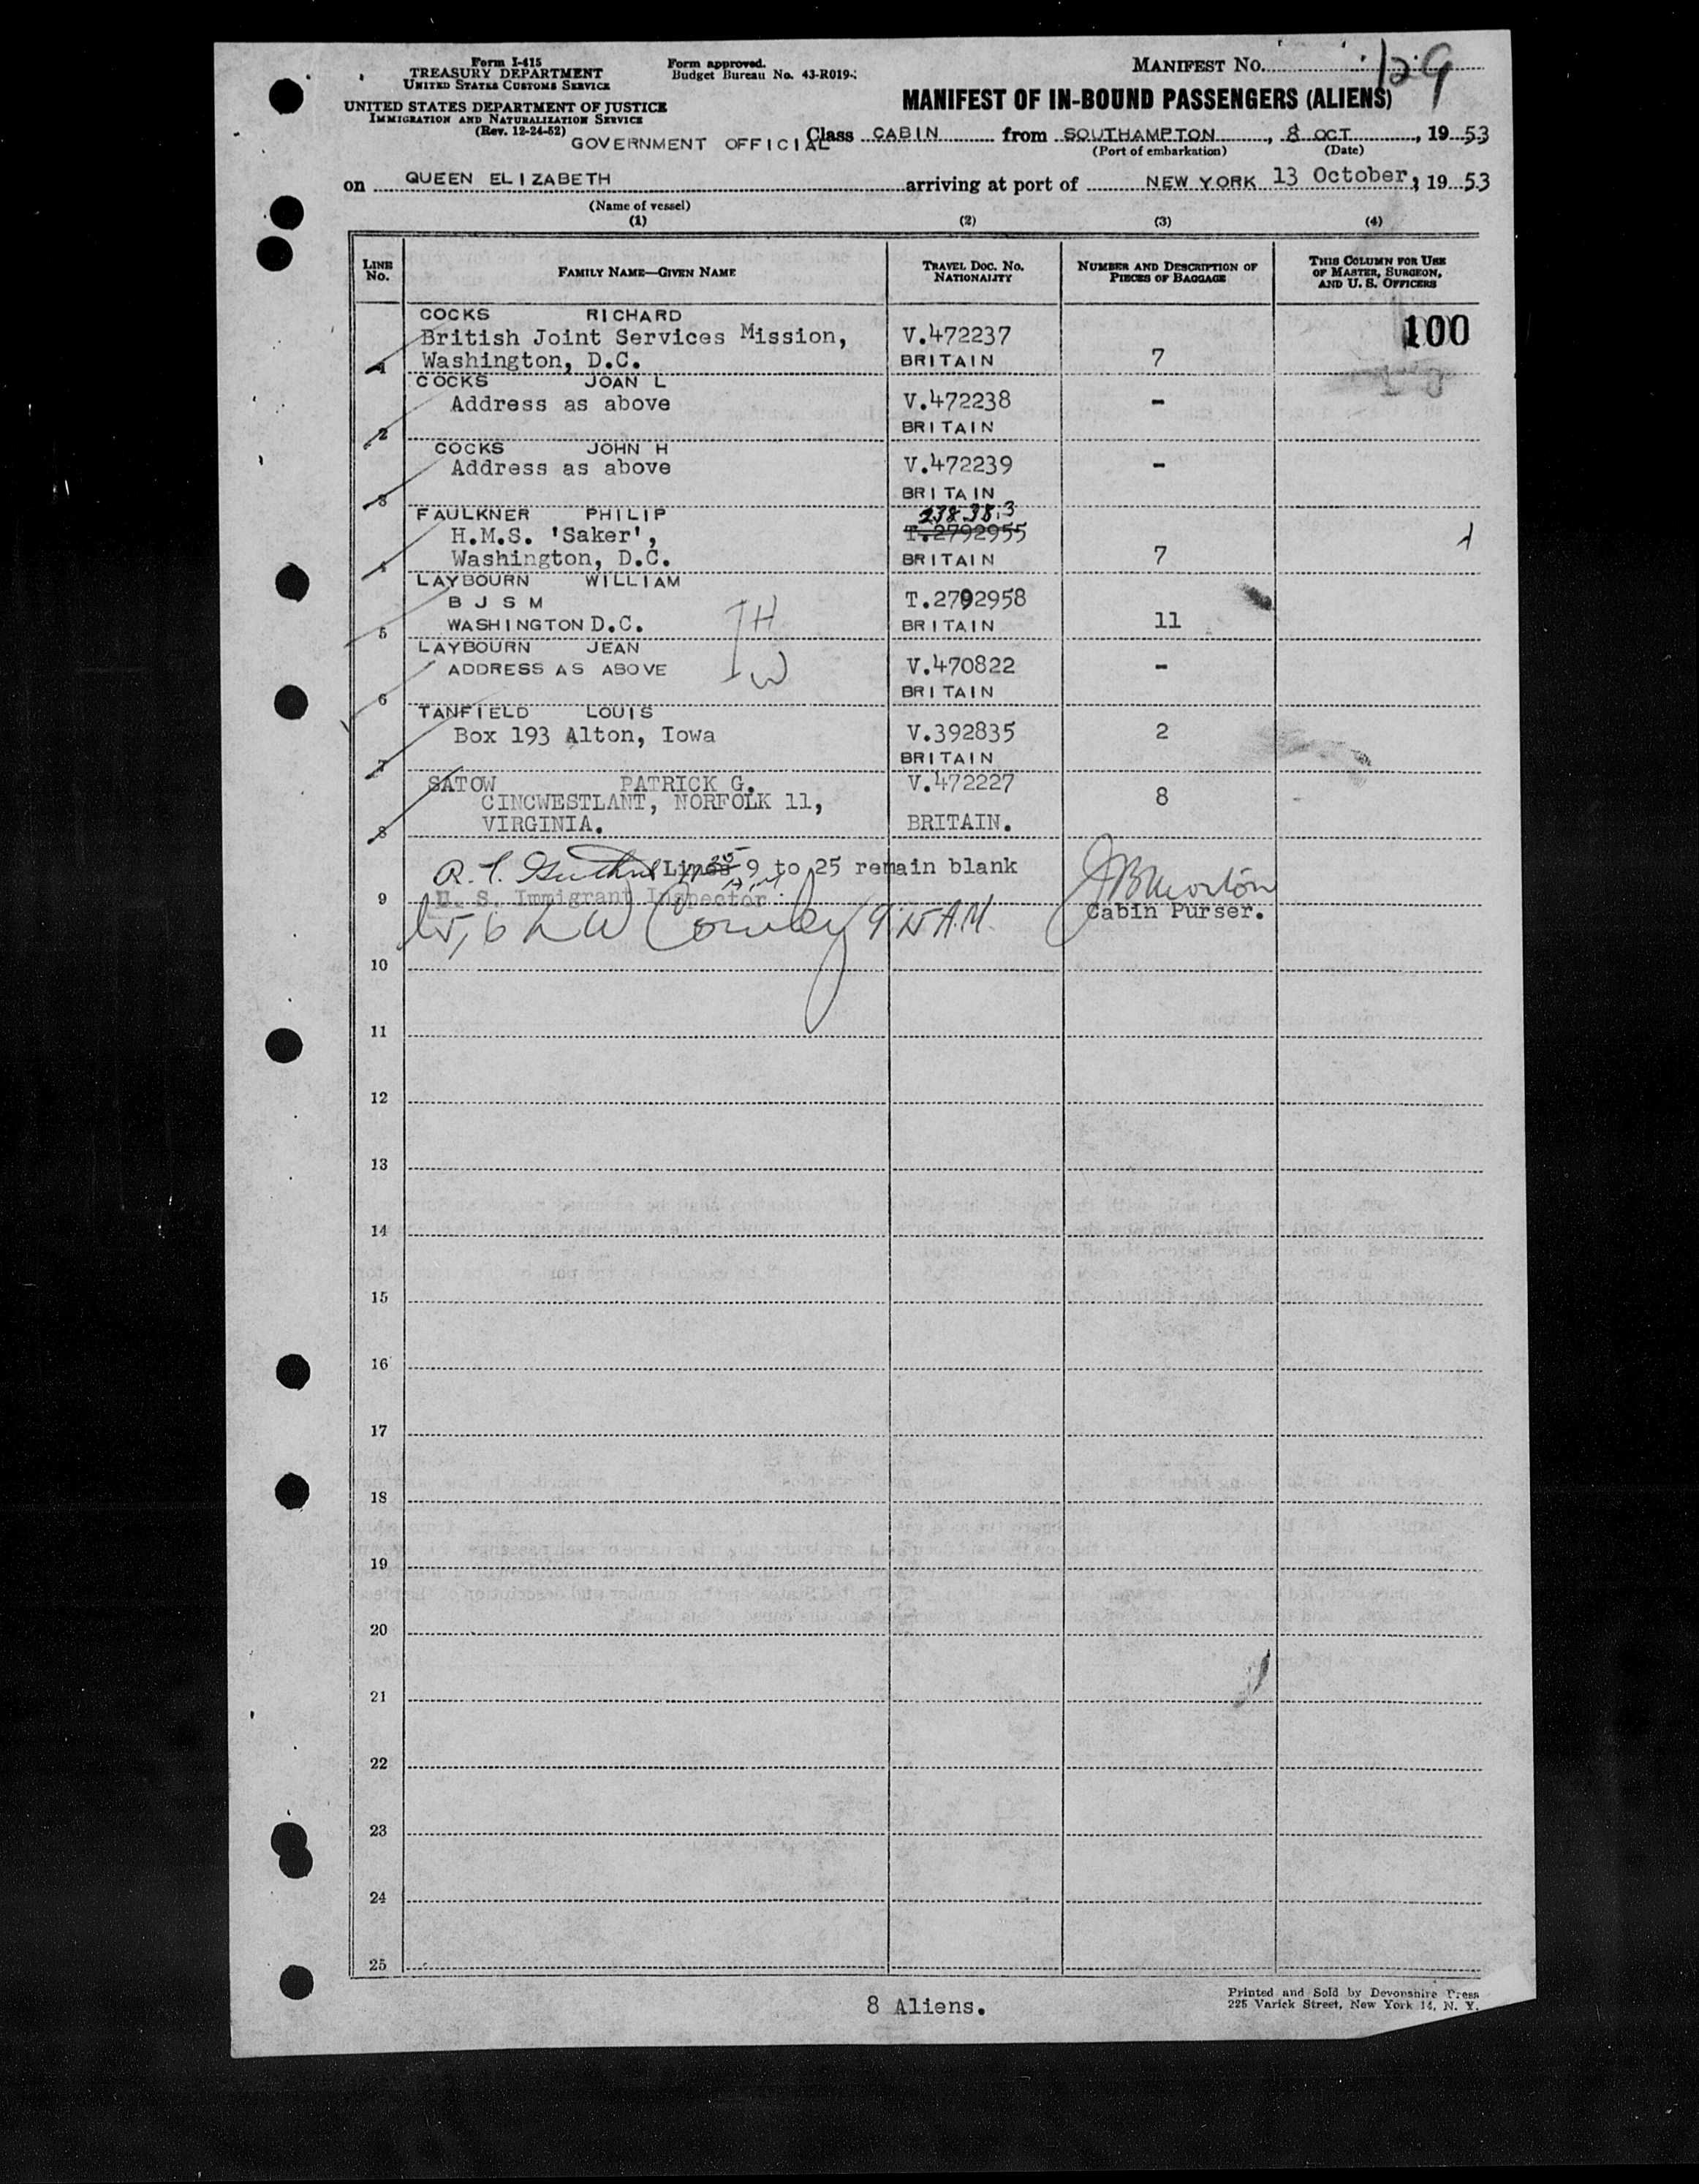 Form I-415
TREASURY DEPARTMENT
UNITED STATES CUSTOMS SERVICE
UNITED STATES DEPARTMENT OF JUSTICE
IMMIGRATION AND NATURALIZATION SERVICE
(Rev. 12-24-52)
Form approved.
Budget Bureau No. 43-R019-
MANIFEST No. 129
MANIFEST OF IN-BOUND PASSENGERS (ALIENS)
GOVERNMENT OFFICIAL Class CABIN from SOUTHAMPTON, 8 OCT, 1953
(Port of embarkation) (Date)
on QUEEN ELIZABETH arriving at port of NEW YORK 13 October, 1953
(Name of vessel)
(1) (2) (3) (4)
LINE No. FAMILY NAME—GIVEN NAME TRAVEL DOC. NO. NATIONALITY NUMBER AND DESCRIPTION OF PIECES OF BAGGAGE THIS COLUMN FOR USE OF MASTER, SURGEON, AND U. S. OFFICERS
COCKS RICHARD
British Joint Services Mission, V.472237 100
1 Washington, D.C. BRITAIN 7
COCKS JOAN L
Address as above V.472238 -
2 BRITAIN
COCKS JOHN H
Address as above V.472239 -
3 BRITAIN
FAULKNER PHILIP 238383
H.M.S. 'Saker', T.2792955
4 Washington, D.C. BRITAIN 7
LAYBOURN WILLIAM
B J S M T.2792958
5 WASHINGTON D.C. H BRITAIN 11
LAYBOURN JEAN
ADDRESS AS ABOVE W V.470822 -
6 BRITAIN
TANFIELD LOUIS
Box 193 Alton, Iowa V.392835 2
7 BRITAIN
SATOW PATRICK G. V.472227
CINCWESTLANT, NORFOLK 11, 8
8 VIRGINIA. BRITAIN.
Lines 9 to 25 remain blank
9 U. S. Immigrant Inspector Cabin Purser.
9 15 A.M.
10
11
12
13
14
15
16
17
18
19
20
21
22
23
24
25
8 Aliens.
Printed and Sold by Devonshire Press
225 Varick Street, New York 14, N. Y.